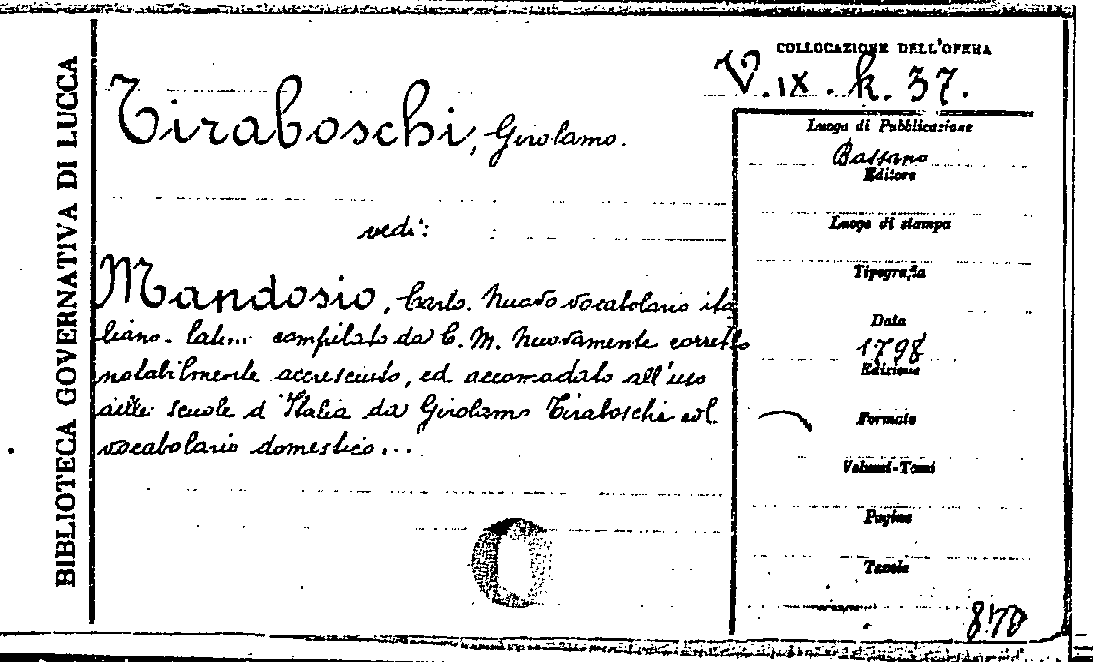 BIBLIOTECA GOVERNATIVA DI LUCCA
COLLOCAZIONE DELL'OPERA
V. IX. k. 37.
Tiraboschi, Girolamo.
vedi:
Mandosio, Carlo. Nuovo vocabolario ita
liano-latin compilato da C. M. Nuovamente corretto
notabilmente accresciuto, ed accomodato all'uso
delle scuole d'Italia da Girolamo Tiraboschi col
vocabolario domestico...
Luogo di Pubblicazione
Bassano
Editore
Luogo di stampa
Tipografia
Data
1798
Edizione
Formato
Volumi-Tomi
Pagine
Tavole
870